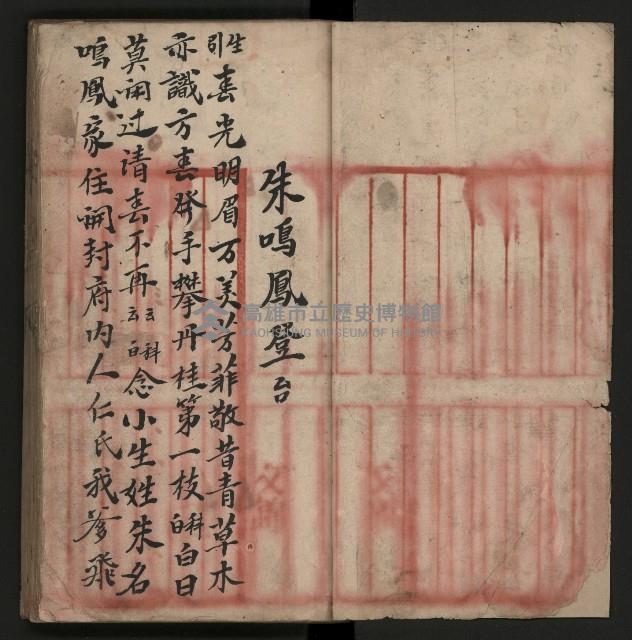 朱鳴鳳登台
生引 春光明眉万美芳菲敬昔青草木
亦識方春發手攀丹桂第一枝 科白 白日
莫闲过请春不再 云云 科白 念小生姓朱名
鳴鳳家住開封府内人仁氏我爹飛
高雄市立歷史博物館
KAOHSIUNG MUSEUM OF HISTORY